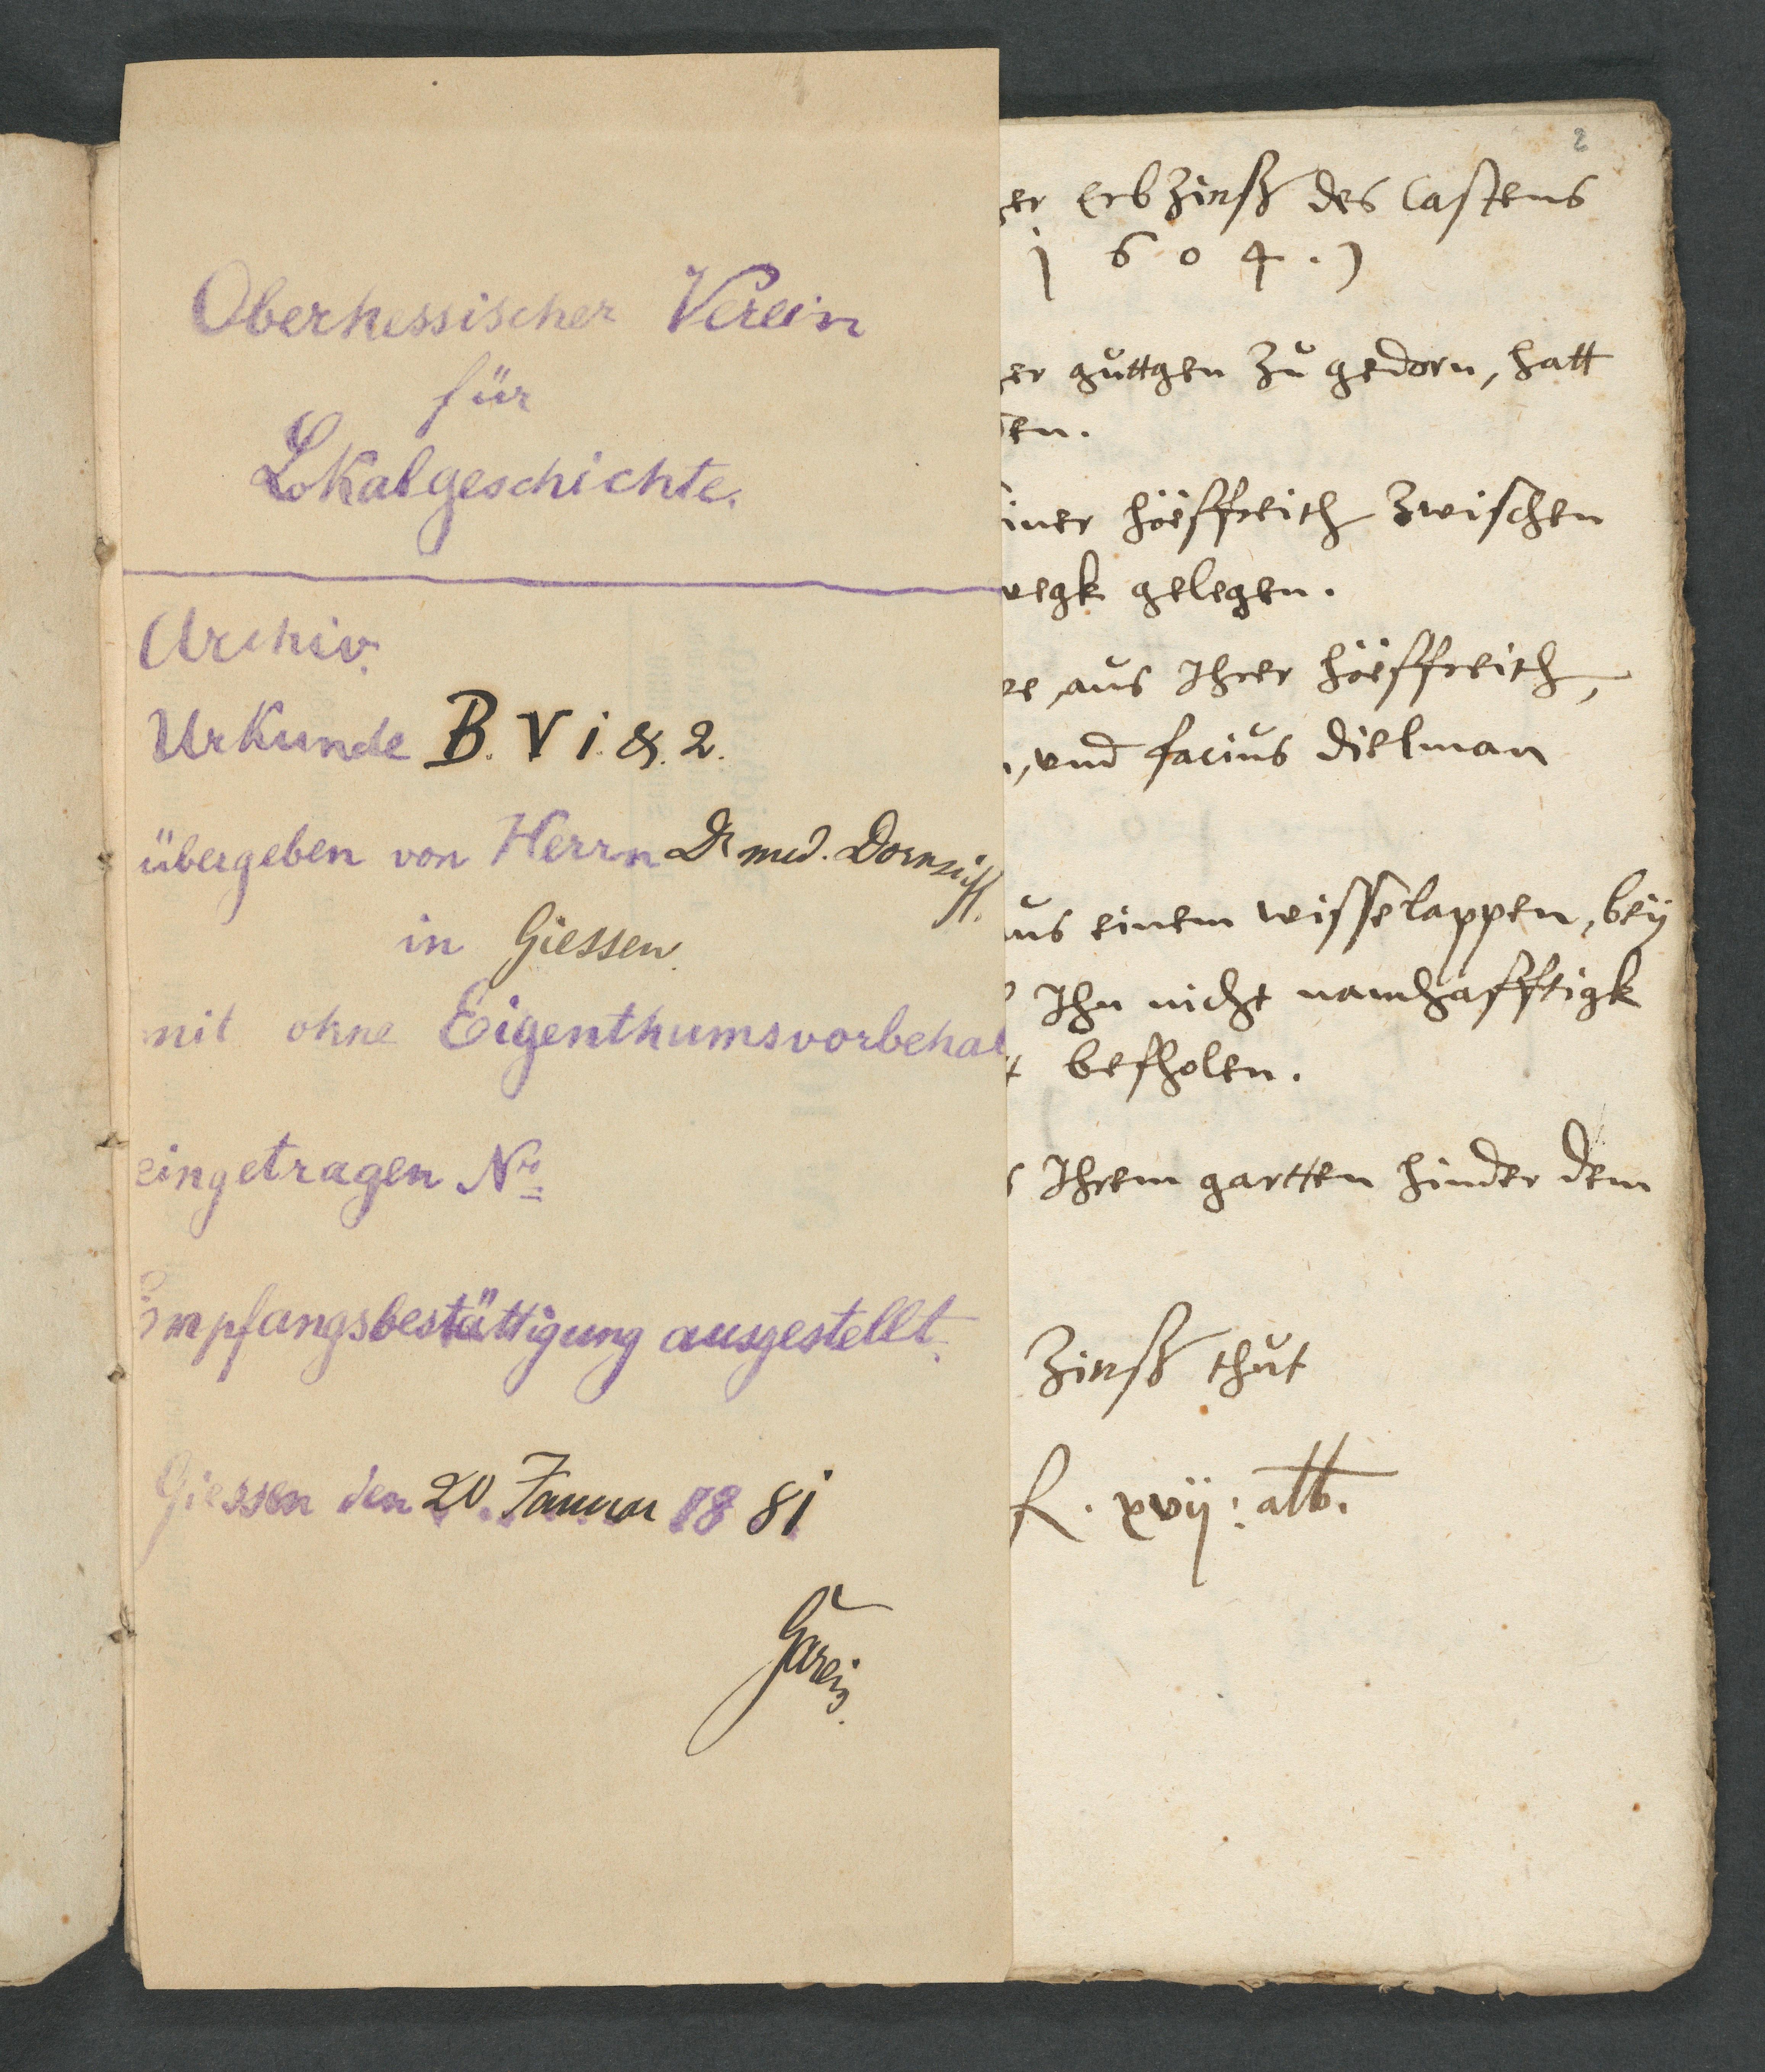 Oberhessischer Verein
für
Lokalgeschichte.
Archiv.
Urkunde B. V 1. & 2.
übergeben von Herrn Dr med. Dornseiff.
in Giessen.
mit ohne Eigenthumsvorbehal
eingetragen No
Empfangsbestättigung ausgestellt.
Giessen den 20. Januar 1881
Gareis.
2
er Erbzinß des Castens
1604.
er guttgen zu gedorn, hatt
en.
iner höeffreith zwischen
wegk gelegen.
re, aus Ihrer höeffreith,
, vnd facius dielman
us einem wisselappen, bey
Ihn nicht namhafftigk
t befholen.
s Ihrem gartten hinder dem
Zinß thut
fl. xvij: alb.